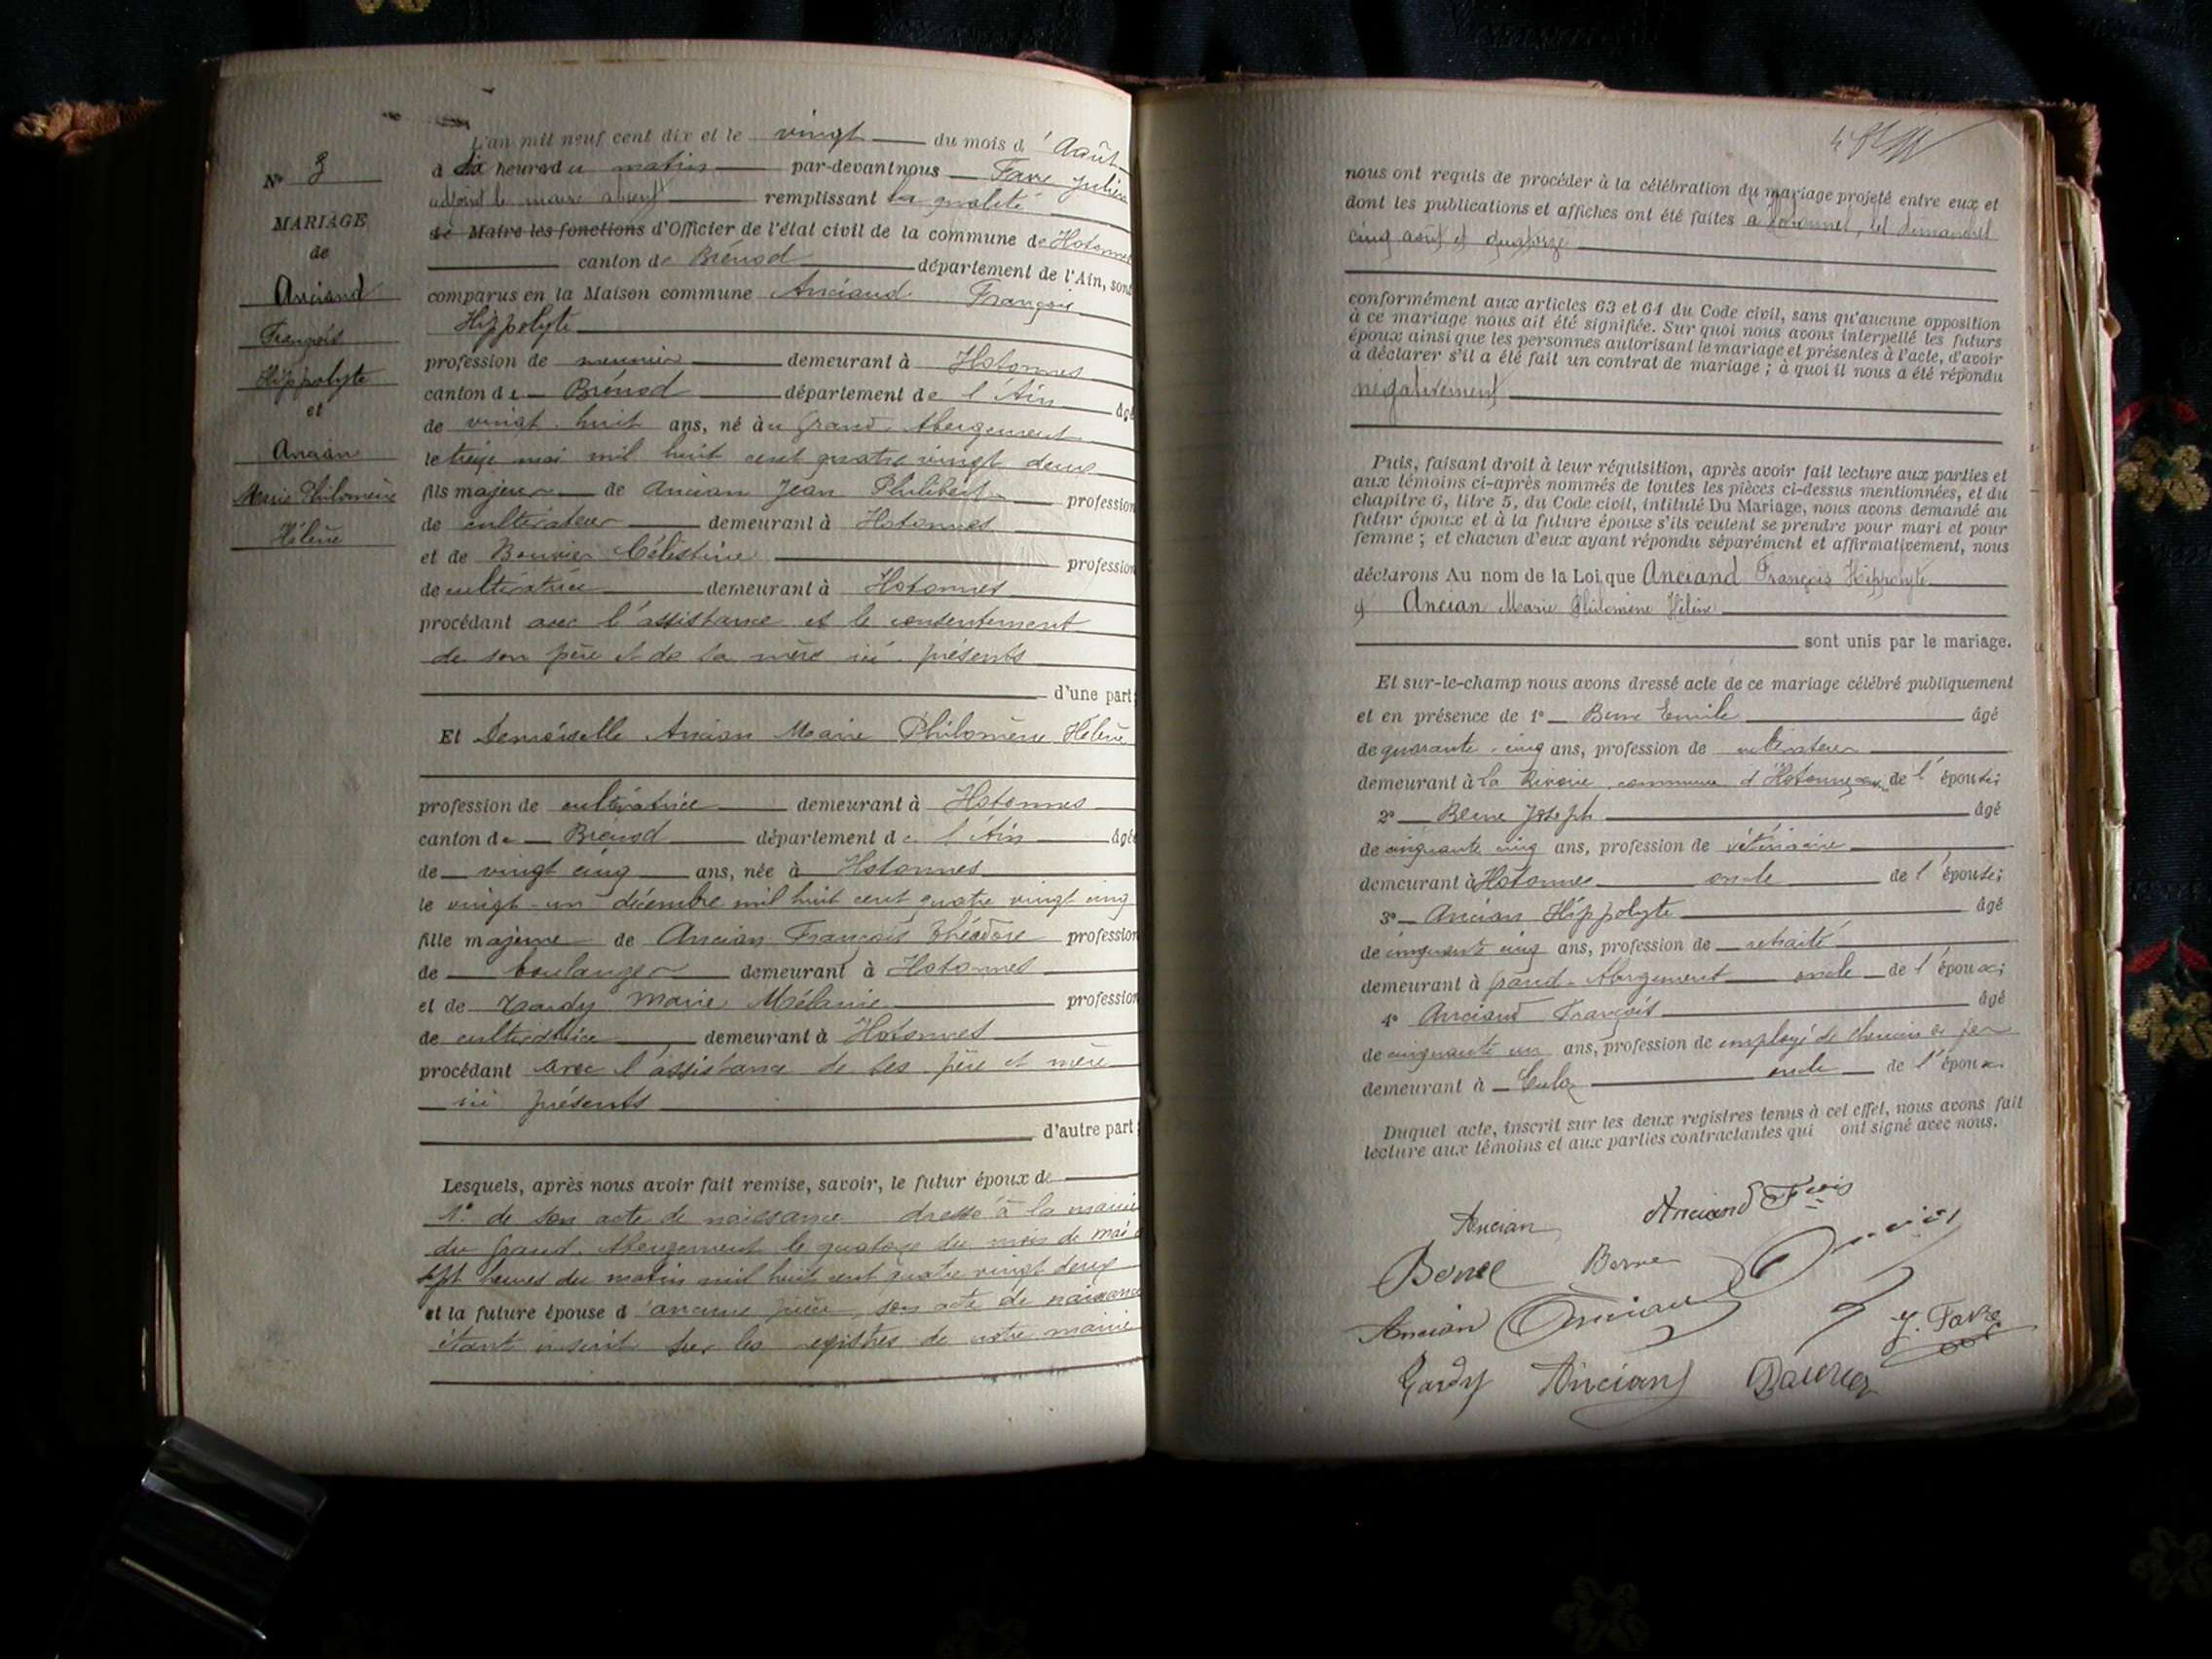 N° 3
MARIAGE
de
Anciand
François
Hippolyte
et
Ancian
Marie Philomène
Hélène
L'an mil neuf cent dix et le vingt du mois d' Août
à dix heures du matin par-devant nous Favre Julien
adjoint le maire absent remplissant la qualité
de Maire les fonctions d'Officier de l'état civil de la commune de Hotonnes
canton de Brénod département de l'Ain, sont
comparus en la Maison commune Anciand François
Hippolyte
profession de meunier demeurant à Hotonnes
canton de Brénod département de l'Ain âgé
de vingt-huit ans, né au Grand-Abergement
le treize mai mil huit cent quatre vingt deux
fils majeur de Ancian Jean Philibert profession
de cultivateur demeurant à Hotonnes
et de Bouvier Célestine profession
de cultivatrice demeurant à Hotonnes
procédant avec l'assistance et le consentement
de son père et de sa mère ici présents
d'une part;
Et Demoiselle Ancian Marie Philomène Hélène
profession de cultivatrice demeurant à Hotonnes
canton de Brenod département de l'Ain âgée
de vingt cinq ans, née à Hotonnes
le vingt-un décembre mil huit cent quatre vingt cinq
fille majeure de Ancian François Théodore profession
de boulanger demeurant à Hotonnes
et de Gardy Marie Mélanie profession
de cultivatrice demeurant à Hotonnes
procédant avec l'assistance de ses père et mère
ici présents
d'autre part;
Lesquels, après nous avoir fait remise, savoir, le futur époux de
1° de son acte de naissance dressé à la mairie
du Grand-Abergement le quatorze du mois de mai à
sept heures du matin mil huit cent quatre vingt deux
et la future épouse d'aucune pièce, son acte de naissance
étant inscrit sur les registres de notre mairie
nous ont requis de procéder à la célébration du mariage projeté entre eux et
dont les publications et affiches ont été faites à Hotonnes, les dimanches
août et quatorze
conformément aux articles 63 et 64 du Code civil, sans qu'aucune opposition
à ce mariage nous ait été signifiée. Sur quoi nous avons interpellé les futurs
époux ainsi que les personnes autorisant le mariage et présentes à l'acte, d'avoir
à déclarer s'il a été fait un contrat de mariage; à quoi il nous a été répondu
négativement
Puis, faisant droit à leur réquisition, après avoir fait lecture aux parties et
aux témoins ci-après nommés de toutes les pièces ci-dessus mentionnées, et du
chapitre 6, titre 5, du Code civil, intitulé Du Mariage, nous avons demandé au
futur époux et à la future épouse s'ils veulent se prendre pour mari et pour
femme; et chacun d'eux ayant répondu séparément et affirmativement, nous
déclarons Au nom de la Loi, que Anciand François Hippolyte
et Ancian Marie Philomène Hélène
sont unis par le mariage.
Et sur-le-champ nous avons dressé acte de ce mariage célébré publiquement
et en présence de 1° Berne Emile âgé
de quarante-cinq ans, profession de cultivateur
demeurant à la Rivoire commune d'Hotonnes de l'épouse;
2° Berne Joseph âgé
de cinquante cinq ans, profession de vétérinaire
demeurant à Hotonnes oncle de l'épouse;
3° Ancian Hippolyte âgé
de cinquante cinq ans, profession de retraité
demeurant à Grand-Abergement oncle de l'époux;
4° Anciand François âgé
de cinquante un ans, profession de employé de chemin de fer
demeurant à Culoz oncle de l'époux
Duquel acte, inscrit sur les deux registres tenus à cet effet, nous avons fait
lecture aux témoins et aux parties contractantes qui ont signé avec nous.
Ancian Anciand Fçois
Berne Berne
Ancian Ancian J. Favre
Gardy Anciand Bouvier